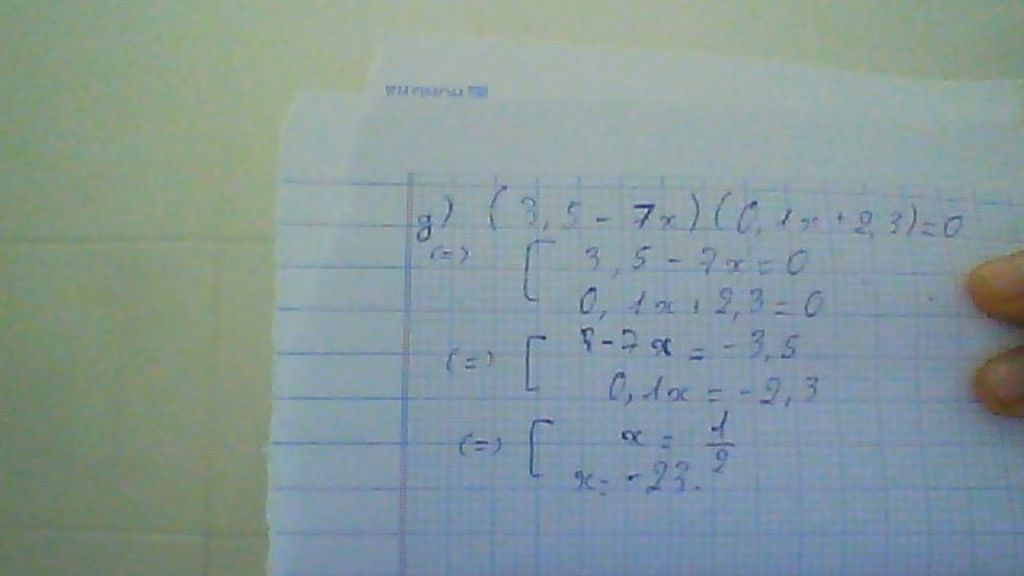 g) (3,5 - 7x)(0,1x + 2,3) = 0
(=) [ 3,5 - 7x = 0
0,1x + 2,3 = 0
(=) [ -7x = -3,5
0,1x = -2,3
(=) [ x = 1/2
x = -23.